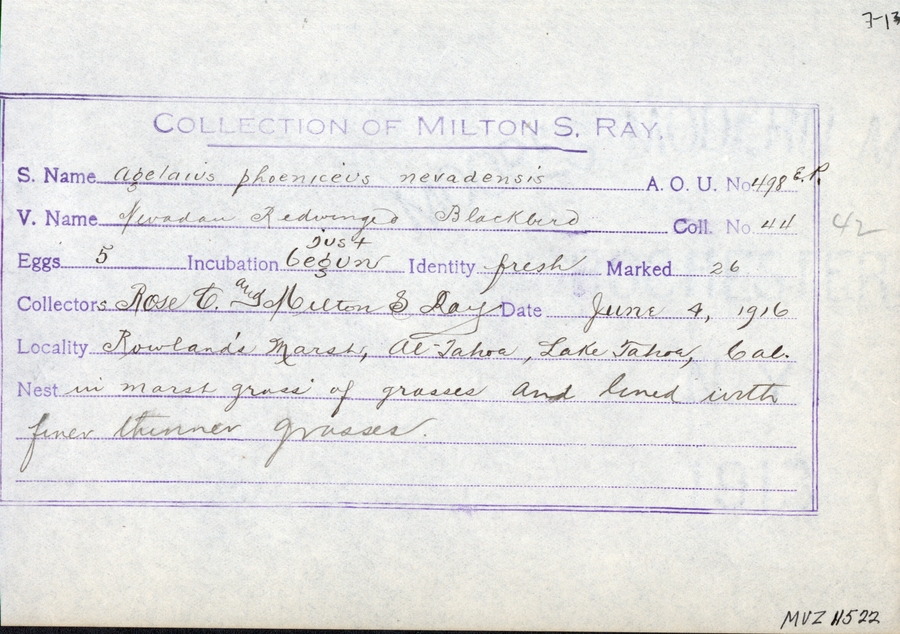 7-13
COLLECTION OF MILTON S. RAY.
S. Name Agelaius phoeniceus nevadensis A. O. U. No. 498 E.P.
V. Name Nevadan Redwinged Blackbird Coll. No. 44 42
Eggs 5 Incubation just begun Identity fresh Marked 26
Collectors Rose C. and Milton S Ray Date June 4, 1916
Locality Rowland's Marsh, Al-Tahoe, Lake Tahoe, Cal.
Nest in marsh grass of grasses and lined with
finer thinner grasses.
MVZ 11522